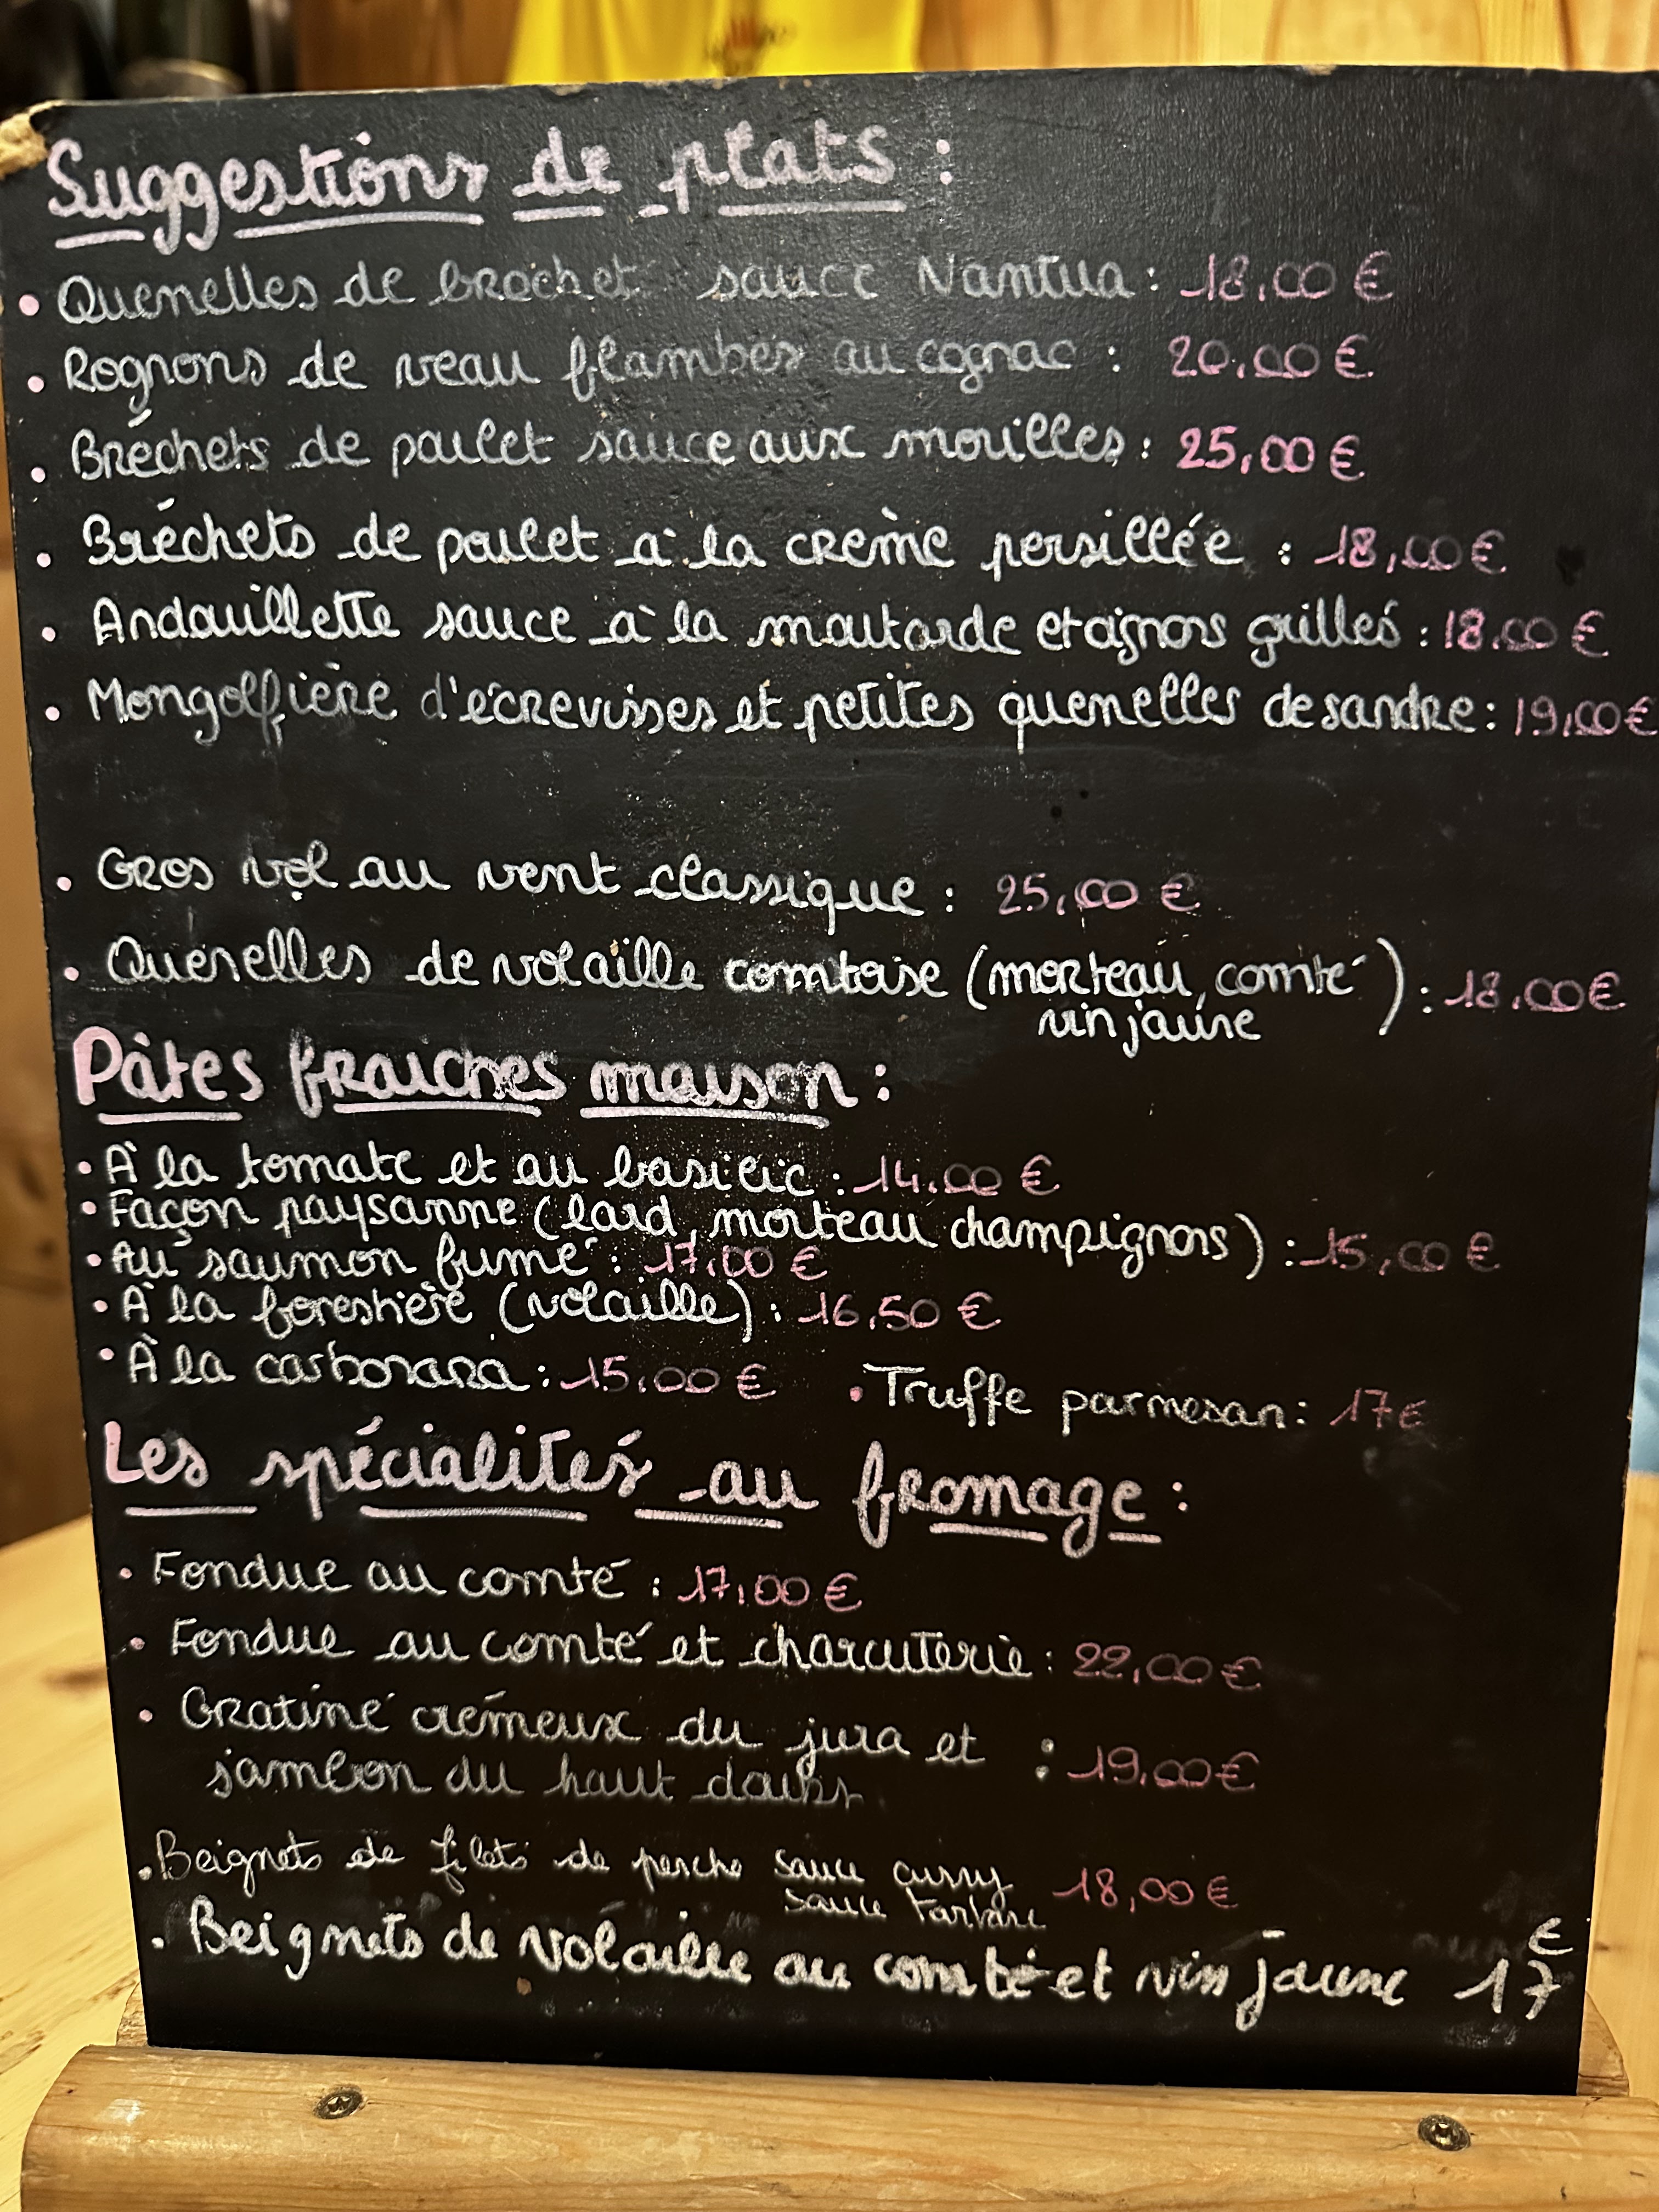 Suggestions de plats :
• Quenelles de brochet sauce Nantua : 18,00 €
• Rognons de veau flambés au cognac : 20,00 €
• Bréchets de poulet sauce aux morilles : 25,00 €
• Bréchets de poulet à la crème persillée : 18,00 €
• Andouillette sauce à la moutarde et oignons grillés : 18.00 €
• Mongolfière d'écrevisses et petites quenelles de sandre : 19,00 €
• Gros vol au vent classique : 25,00 €
• Quenelles de volaille comtoise (morteau, comté ) : 18.00 €
vin jaune
Pâtes fraiches maison :
• À la tomate et au basilic : 14.00 €
• Façon paysanne (lard, morteau champignons) : 15,00 €
• Au saumon fumé : 17,00 €
• À la forestière (volaille) : 16,50 €
• À la carbonara : 15,00 € • Truffe parmesan : 17 €
Les spécialités au fromage :
• Fondue au comté : 17,00 €
• Fondue au comté et charcuterie : 22,00 €
• Gratiné crémeux du jura et : 19,00 €
jambon du haut doubs
• Beignets de filets de perche sauce curry 18,00 €
sauce tartare
• Beignets de volaille au comté et vin jaune 17 €